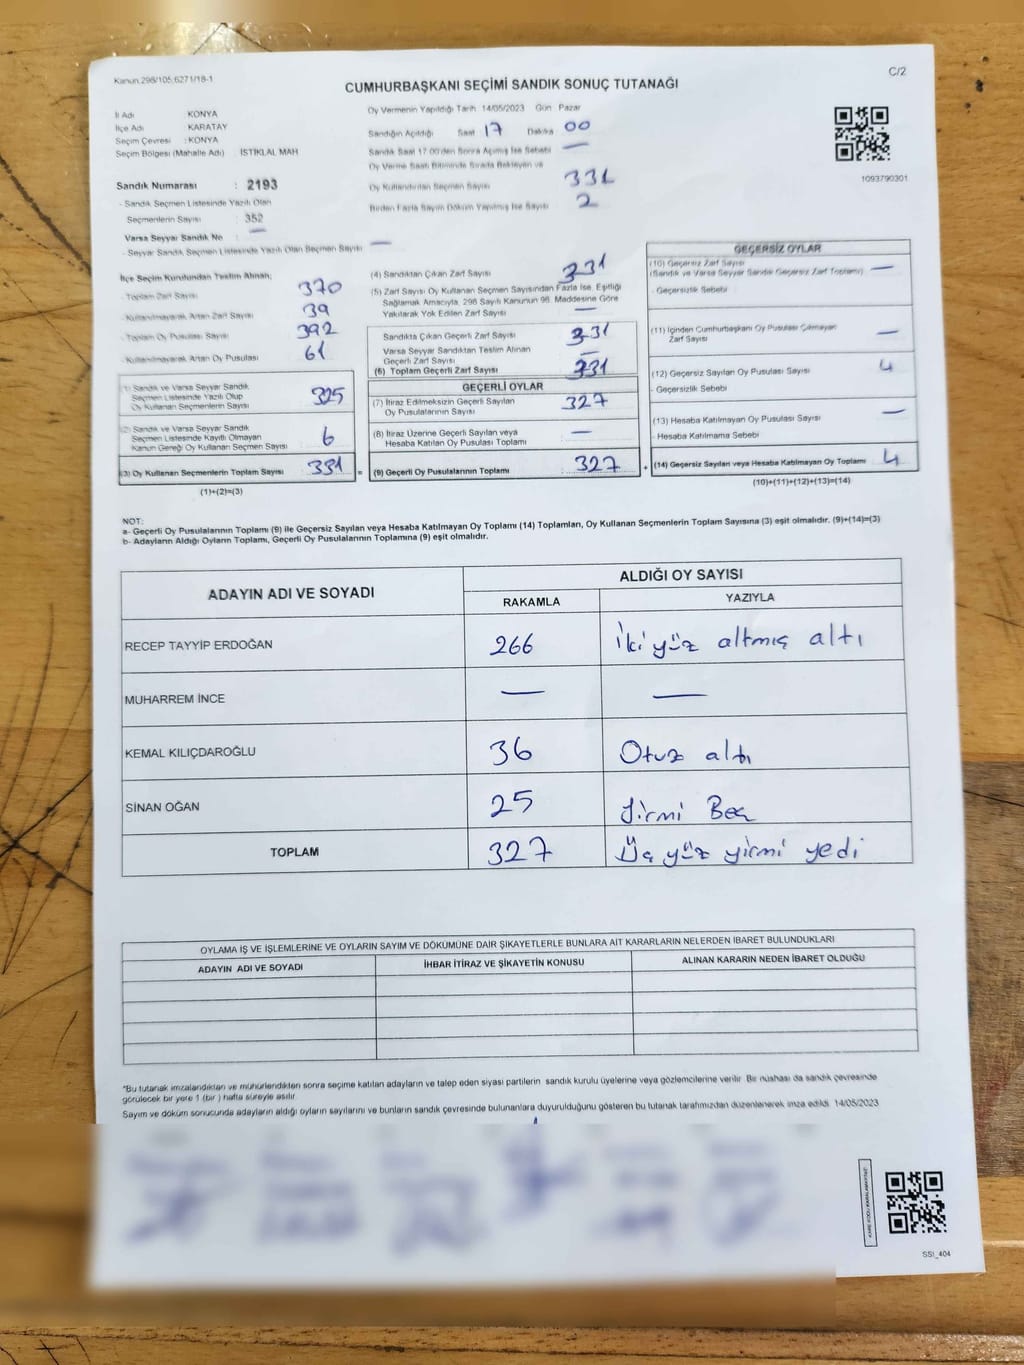 Kanun.298/105.6271/18-1
C/2
CUMHURBAŞKANI SEÇİMİ SANDIK SONUÇ TUTANAĞI
İl Adı KONYA
İlçe Adı KARATAY
Seçim Çevresi : KONYA
Seçim Bölgesi (Mahalle Adı) İSTİKLAL MAH
Oy Vermenin Yapıldığı Tarih 14/05/2023 Gün Pazar
Sandığın Açıldığı Saat 17 Dakika 00
Sandık Saat 17.00'den Sonra Açılmış İse Sebebi —
Oy Verme Saati Bitiminde Sırada Bekleyen ve
Oy Kullandırılan Seçmen Sayısı 331
Birden Fazla Sayım Döküm Yapılmış İse Sayısı 2
1093790301
Sandık Numarası : 2193
- Sandık Seçmen Listesinde Yazılı Olan
Seçmenlerin Sayısı : 352
Varsa Seyyar Sandık No : —
- Seyyar Sandık Seçmen Listesinde Yazılı Olan Seçmen Sayısı —
İlçe Seçim Kurulundan Teslim Alınan;
- Toplam Zarf Sayısı 370
- Kullanılmayarak Artan Zarf Sayısı 39
- Toplam Oy Pusulası Sayısı 392
- Kullanılmayarak Artan Oy Pusulası 61
(1) Sandık ve Varsa Seyyar Sandık
Seçmen Listesinde Yazılı Olup
Oy Kullanan Seçmenlerin Sayısı 325
(2) Sandık ve Varsa Seyyar Sandık
Seçmen Listesinde Kayıtlı Olmayan
Kanun Gereği Oy Kullanan Seçmen Sayısı 6
(3) Oy Kullanan Seçmenlerin Toplam Sayısı 331 =
(1)+(2)=(3)
(4) Sandıktan Çıkan Zarf Sayısı 331
(5) Zarf Sayısı Oy Kullanan Seçmen Sayısından Fazla İse, Eşitliği
Sağlamak Amacıyla, 298 Sayılı Kanunun 98. Maddesine Göre
Yakılarak Yok Edilen Zarf Sayısı —
Sandıkta Çıkan Geçerli Zarf Sayısı 331
Varsa Seyyar Sandıktan Teslim Alınan
Geçerli Zarf Sayısı —
(6) Toplam Geçerli Zarf Sayısı 331
GEÇERLİ OYLAR
(7) İtiraz Edilmeksizin Geçerli Sayılan
Oy Pusulalarının Sayısı 327
(8) İtiraz Üzerine Geçerli Sayılan veya
Hesaba Katılan Oy Pusulası Toplamı —
(9) Geçerli Oy Pusulalarının Toplamı 327 +
GEÇERSİZ OYLAR
(10) Geçersiz Zarf Sayısı
(Sandık ve Varsa Seyyar Sandık Geçersiz Zarf Toplamı) —
- Geçersizlik Sebebi
(11) İçinden Cumhurbaşkanı Oy Pusulası Çıkmayan
Zarf Sayısı —
(12) Geçersiz Sayılan Oy Pusulası Sayısı 4
- Geçersizlik Sebebi
(13) Hesaba Katılmayan Oy Pusulası Sayısı —
- Hesaba Katılmama Sebebi
(14) Geçersiz Sayılan veya Hesaba Katılmayan Oy Toplamı 4
(10)+(11)+(12)+(13)=(14)
NOT:
a- Geçerli Oy Pusulalarının Toplamı (9) ile Geçersiz Sayılan veya Hesaba Katılmayan Oy Toplamı (14) Toplamları, Oy Kullanan Seçmenlerin Toplam Sayısına (3) eşit olmalıdır. (9)+(14)=(3)
b- Adayların Aldığı Oyların Toplamı, Geçerli Oy Pusulalarının Toplamına (9) eşit olmalıdır.
ADAYIN ADI VE SOYADI
ALDIĞI OY SAYISI
RAKAMLA YAZIYLA
RECEP TAYYİP ERDOĞAN 266 İki yüz altmış altı
MUHARREM İNCE — —
KEMAL KILIÇDAROĞLU 36 Otuz altı
SİNAN OĞAN 25 Yirmi Beş
TOPLAM 327 Üç yüz yirmi yedi
OYLAMA İŞ VE İŞLEMLERİNE VE OYLARIN SAYIM VE DÖKÜMÜNE DAİR ŞİKAYETLERLE BUNLARA AİT KARARLARIN NELERDEN İBARET BULUNDUKLARI
ADAYIN ADI VE SOYADI İHBAR İTİRAZ VE ŞİKAYETİN KONUSU ALINAN KARARIN NEDEN İBARET OLDUĞU
*Bu tutanak imzalandıktan ve mühürlendikten sonra seçime katılan adayların ve talep eden siyasi partilerin sandık kurulu üyelerine veya gözlemcilerine verilir. Bir nüshası da sandık çevresinde
görülecek bir yere 1 (bir ) hafta süreyle asılır.
Sayım ve döküm sonucunda adayların aldığı oyların sayılarını ve bunların sandık çevresinde bulunanlara duyurulduğunu gösteren bu tutanak tarafımızdan düzenlenerek imza edildi. 14/05/2023
SSI_404